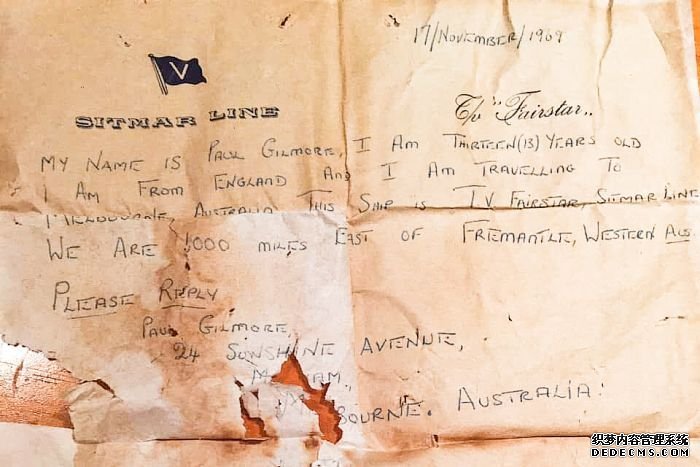 17/November/1969
V
SITMAR LINE
T/v "Fairstar„
MY NAME IS PAUL GILMORE, I AM THIRTEEN (13) YEARS OLD
I AM FROM ENGLAND AND I AM TRAVELLING TO
MELBOURNE, AUSTRALIA THIS SHIP IS T.V FAIRSTAR, SITMAR LINE
WE ARE 1000 MILES EAST OF FREMANTLE, WESTERN AUS.
PLEASE REPLY
PAUL GILMORE,
24 SUNSHINE AVENUE,
BOURNE. AUSTRALIA.
织梦内容管理系统
DEDECMS.COM